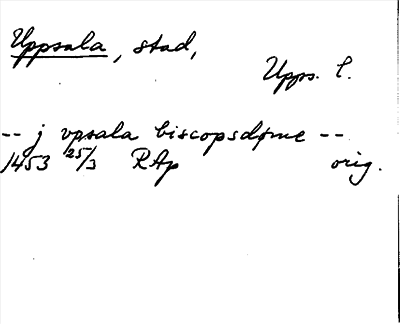 Uppsala, stad,
Upps. l.
-- j vpsala biscopsdøme --
1453 25/3 RAp orig.